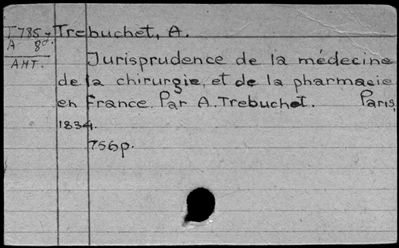 T785- Trebuchet, A.
A 8º.
AMT. Jurisprudence de la médecine
de la chirurgie, et de la pharmacie
en France. Par A. Trebuchet. Paris,
1834.
756p.